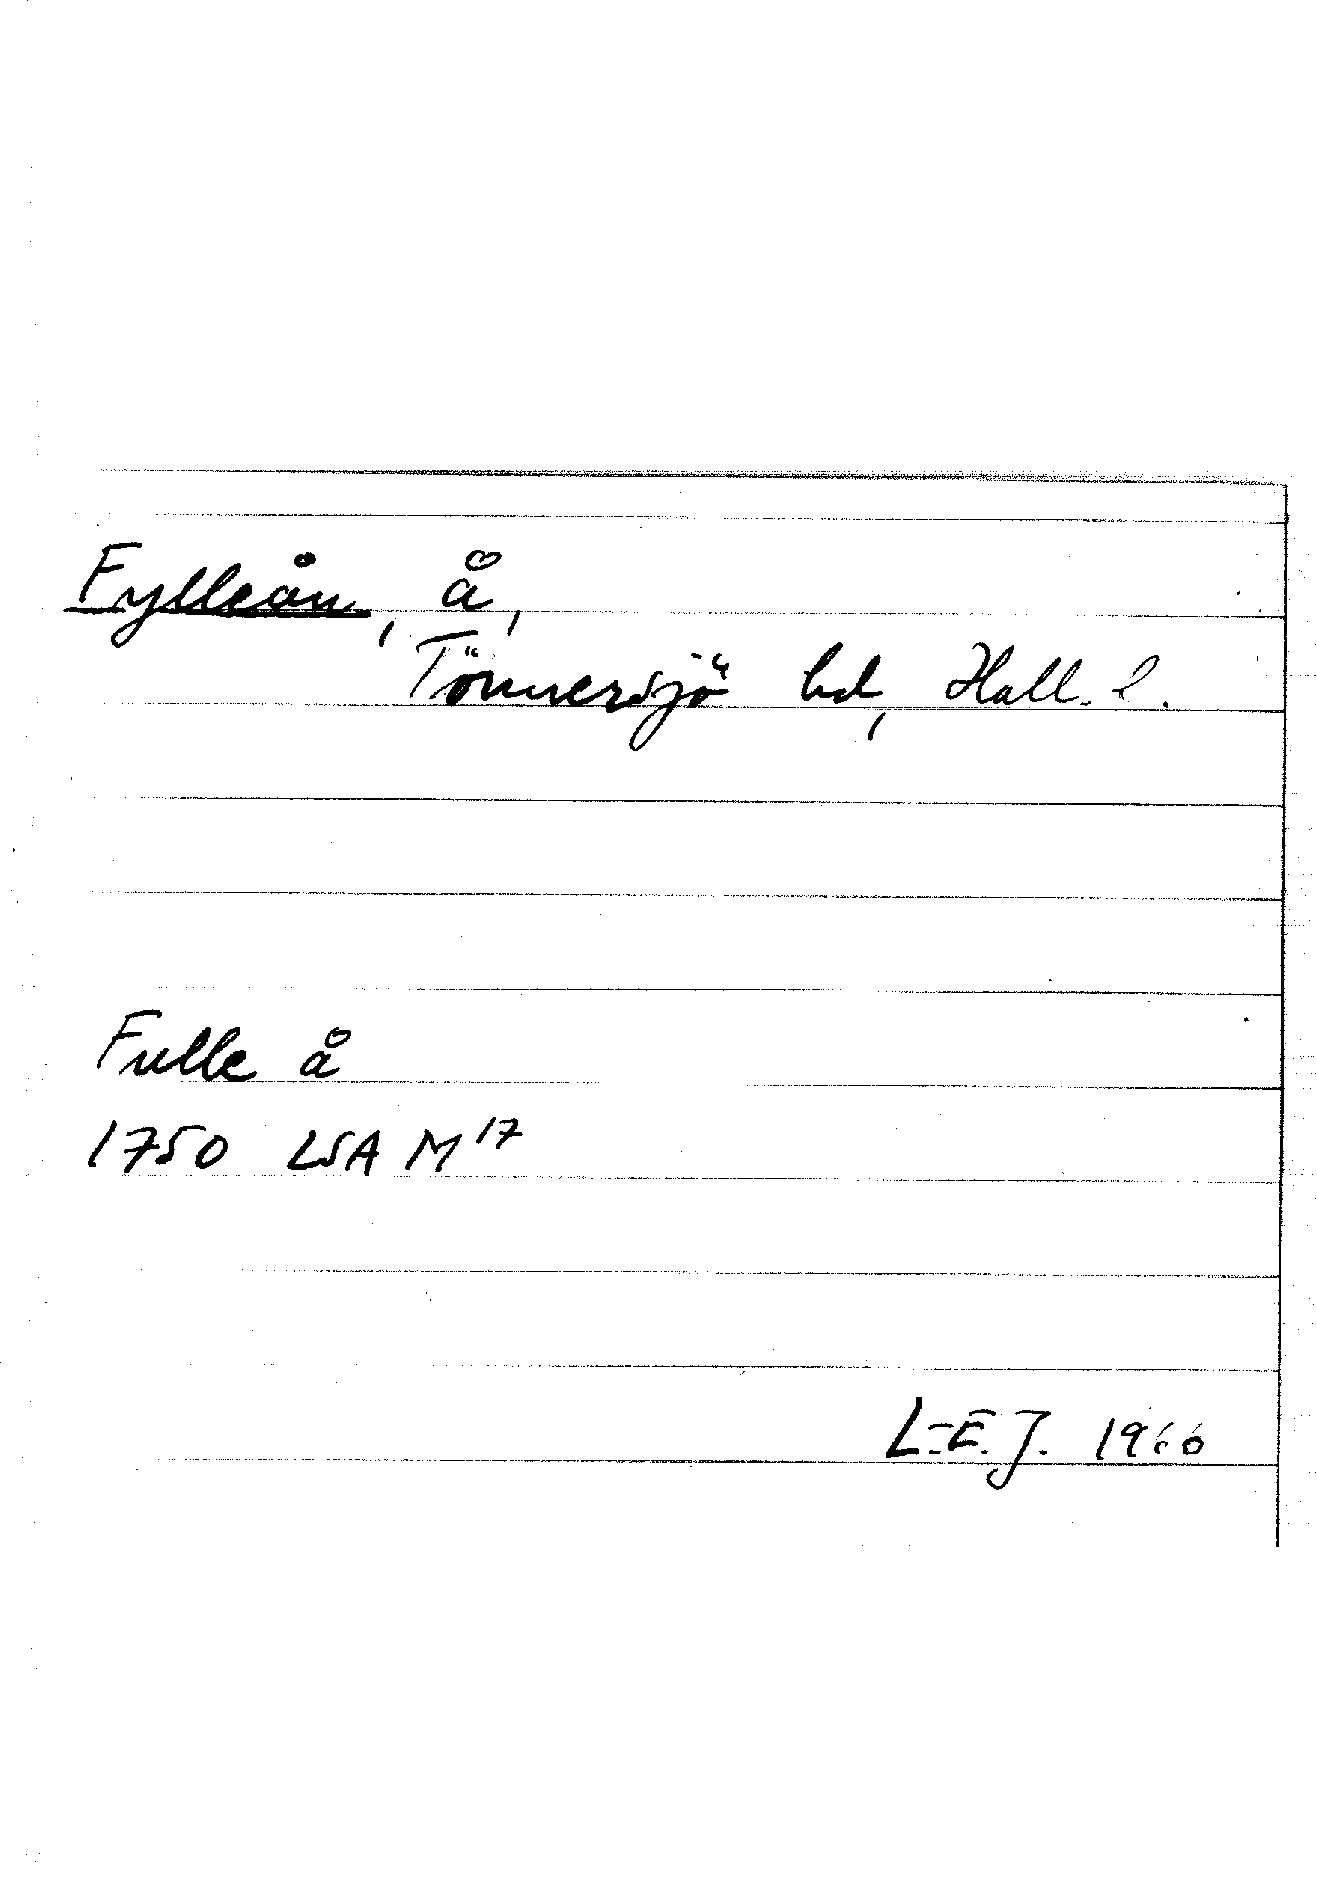 Fylleån, å,
Tönnersjö hd, Hall. l.
Fulle å
1750 LSA M 17
L-E. J. 1966